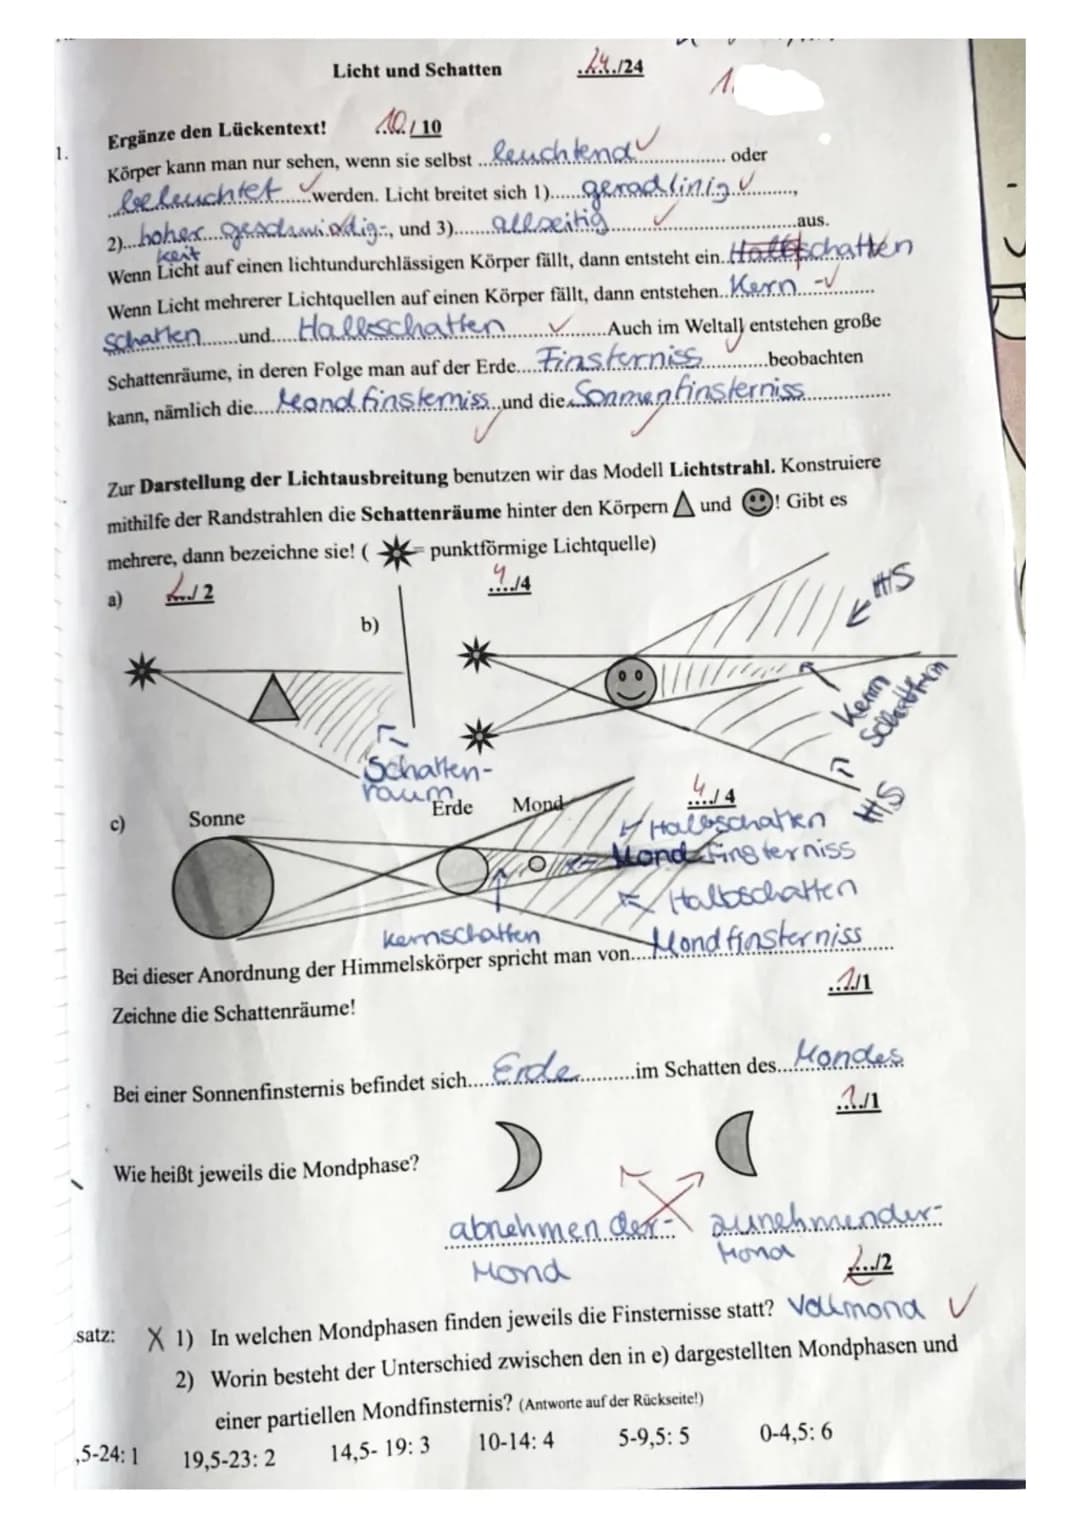 Licht und Schatten 24./24
1.
1. Ergänze den Lückentext! 10./10
Körper kann man nur sehen, wenn sie selbst ..leuchtend.. oder
beleuchtet werden. Licht breitet sich 1)......geradlinig......,
2)...hoher geschwindig-, und 3)......allseitig......aus.
keit
Wenn Licht auf einen lichtundurchlässigen Körper fällt, dann entsteht ein..schatten
Wenn Licht mehrerer Lichtquellen auf einen Körper fällt, dann entstehen..Kern-
schatten......und....Halbschatten......Auch im Weltall entstehen große
Schattenräume, in deren Folge man auf der Erde....Finsterniss......beobachten
kann, nämlich die....Mondfinsterniss..und die..Sonnenfinsterniss......
Zur Darstellung der Lichtausbreitung benutzen wir das Modell Lichtstrahl. Konstruiere
mithilfe der Randstrahlen die Schattenräume hinter den Körpern und ! Gibt es
mehrere, dann bezeichne sie! ( = punktförmige Lichtquelle)
a) 2../2
b) 4../4
HS
Kern
schatten
Schatten-
raum
HS
c) Sonne Erde Mond 4../4
Halbschatten
Mondfinsterniss
Halbschatten
Kernschatten
Bei dieser Anordnung der Himmelskörper spricht man von....Mondfinsterniss......
..1./1
Zeichne die Schattenräume!
Bei einer Sonnenfinsternis befindet sich....Erde......im Schatten des..Mondes
1../1
Wie heißt jeweils die Mondphase?
abnehmender- zunehmender-
Mond Mond
2../2
satz: X 1) In welchen Mondphasen finden jeweils die Finsternisse statt? Vollmond
2) Worin besteht der Unterschied zwischen den in e) dargestellten Mondphasen und
einer partiellen Mondfinsternis? (Antworte auf der Rückseite!)
,5-24: 1 19,5-23: 2 14,5- 19: 3 10-14: 4 5-9,5: 5 0-4,5: 6